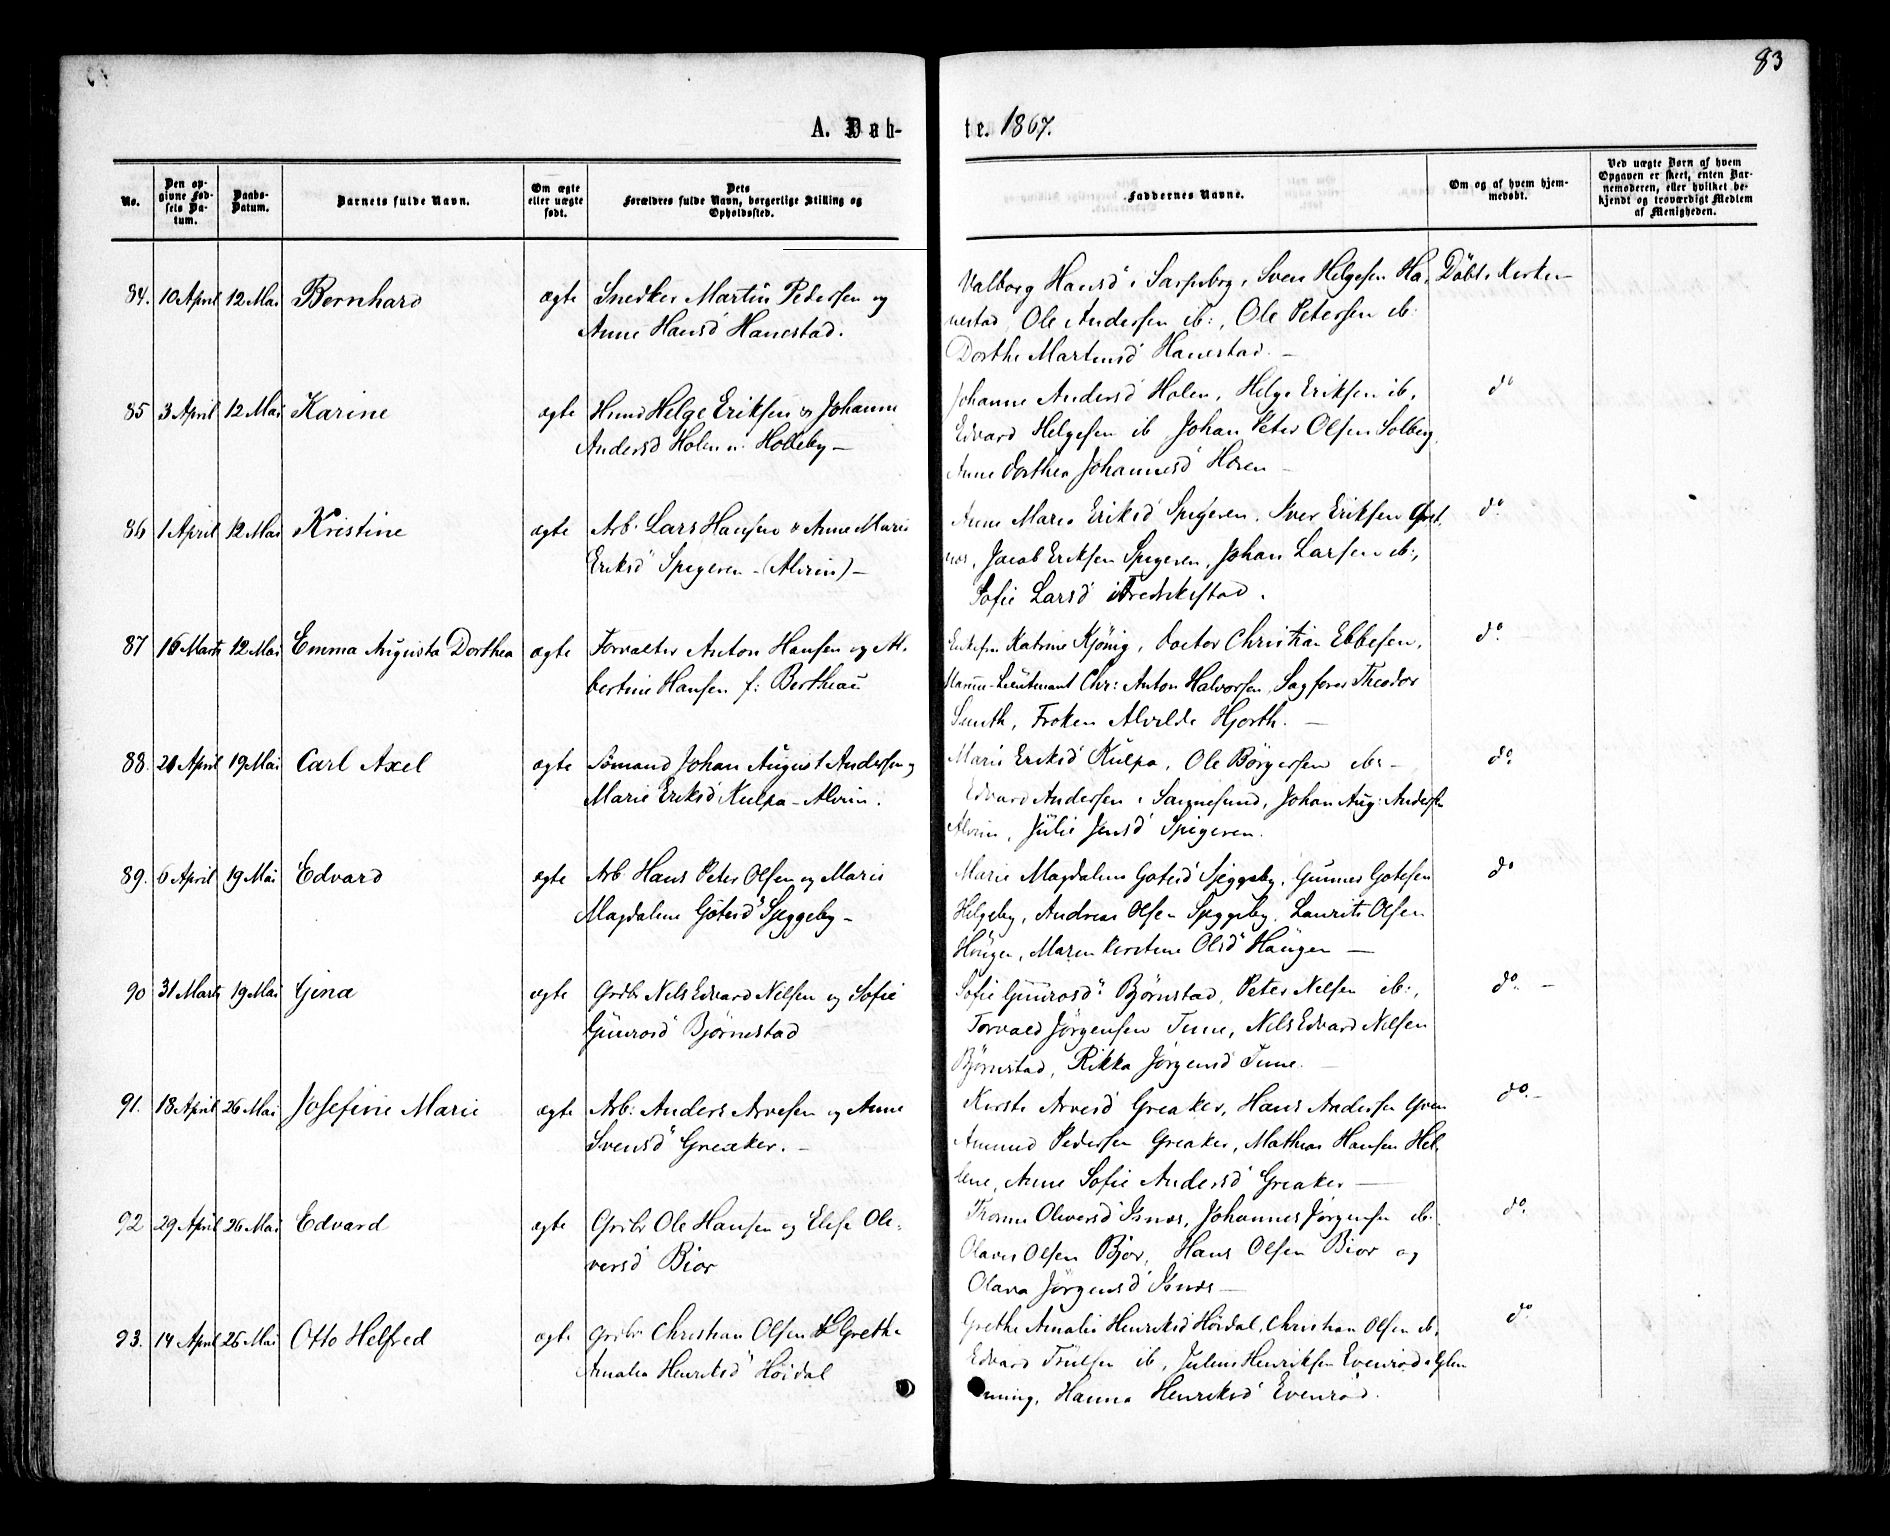 83
A. Døb-
te. 1867.
No.
Den op-
givne Fød-
sels Da-
tum.
Daabs-
Datum.
Barnets fulde Navn.
Om ægte
eller uægte
født.
Dets
Forældres fulde Navn, borgerlige Stilling og
Opholdssted.
Faddernes Navne.
Om og af hvem hjem-
medøbt.
Ved uægte Børn af hvem
Opgaven er skeet, enten Bar-
nemoderen, eller hvilket be-
kjendt og troværdigt Medlem
af Menigheden.
84. 10 April 12 Mai Bernhard ægte Snedker Martin Pedersen og
Anne Hansd Hanestad.
Valborg Hansd i Sarpsborg, Sven Helgesen Ha- Döbt i Kirken
nestad, Ole Andersen ib:, Ole Petersen ib:
Dorthe Martinsd Hanestad. —
85 3 April 12 Mai Karine ægte Huusm Helge Eriksen og Johanne
Andersd Holen u. Holleby —
Johanne Andersd Holen, Helge Eriksen ib, do
Edvard Helgesen ib Johan Peter Olsen Solberg,
Anne Dorthea Johannesd Holen —
86 1 April 12 Mai Kristine ægte Arb. Lars Hansen & Anne Marie
Eriksd Spigeren - (Alvim) —
Anne Marie Eriksd Spigeren, Iver Eriksen Gret- do.
nes, Jacob Eriksen Spigeren, Johan Larsen ib:,
Sofie Larsd i Fredrikstad.
87 16 Marts 12 Mai Emma Augusta Dorthea ægte Forvalter Anton Hansen og Al-
bertine Hansen f: Bertheau
Katrine Kjönig, Doctor Christian Ebbesen, do.
Marine-Lieutenant Chr: Anton Halvorsen, Sagfører Theodor
Smith, Frøken Alvilde Hjorth. —
88. 21 April 19 Mai Carl Axel ægte Sømand Johan August Andersen og
Marie Eriksd Kulpa - Alvim.
Marie Eriksd Kulpa, Ole Börgersen ib: — do.
Edvard Andersen i Sannesund, Johan Aug: Andersen
Alvim, Julie Jensd Spigeren.
89. 6 April 19 Mai Edvard ægte Arb Hans Peter Olsen og Marie
Magdalene Götesd Sjeggeby —
Marie Magdalene Gotesd Sjeggeby, Gunnes Gotesen do
Helgeby, Andreas Olsen Sjeggeby, Laurits Olsen
Höugen, Maren Kirstine Olsd Haugen —
90 31 Marts 19 Mai Gina ægte Grdbr Nils Edvard Nilsen og Sofie
Gunrosd Bjørnestad
Sofie Gunrosd: Bjørnstad, Peter Nilsen ib:, do. —
Torvald Jörgensen Tune, Nils Edvard Nilsen
Bjørnstad, Rikka Jørgensd Tune. —
91. 18 April 26 Mai Josefine Marie ægte Arb: Anders Arvesen og Anne
Svensd Greaker. —
Kirste Arvesd Greaker, Hans Andersen Gven do. —
Amund Pedersen Greaker, Mathias Hansen Hel-
lene, Anne Sofie Andersd Greaker —
92 29 April 26 Mai Edvard ægte Grdbr Ole Hansen og Elise Ole-
versd Bior
Thorine Oleversd Isnæs, Johannes Jørgensen ib: do.
Olaves Olsen Bjør, Hans Olsen Bior og
Olava Jørgensd Isnæs —
93. 14 April 26 Mai Otto Helfred ægte Grdbr Christian Olsen & Grethe
Amalia Henriksd Höidal
Grethe Amalie Henriksd Höidal, Christian Olsen ib, do.
Edvard ib, Julius Henriksen Evenrød i Glem
ming, Hanna Henriksd Evenrød.